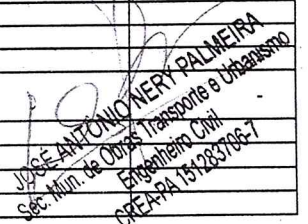 JOSÉ ANTÔNIO NERY PALMEIRA
Sec. Mun. de Obras Transporte e Urbanismo
Engenheiro Civil
CREA-PA 151283706-7